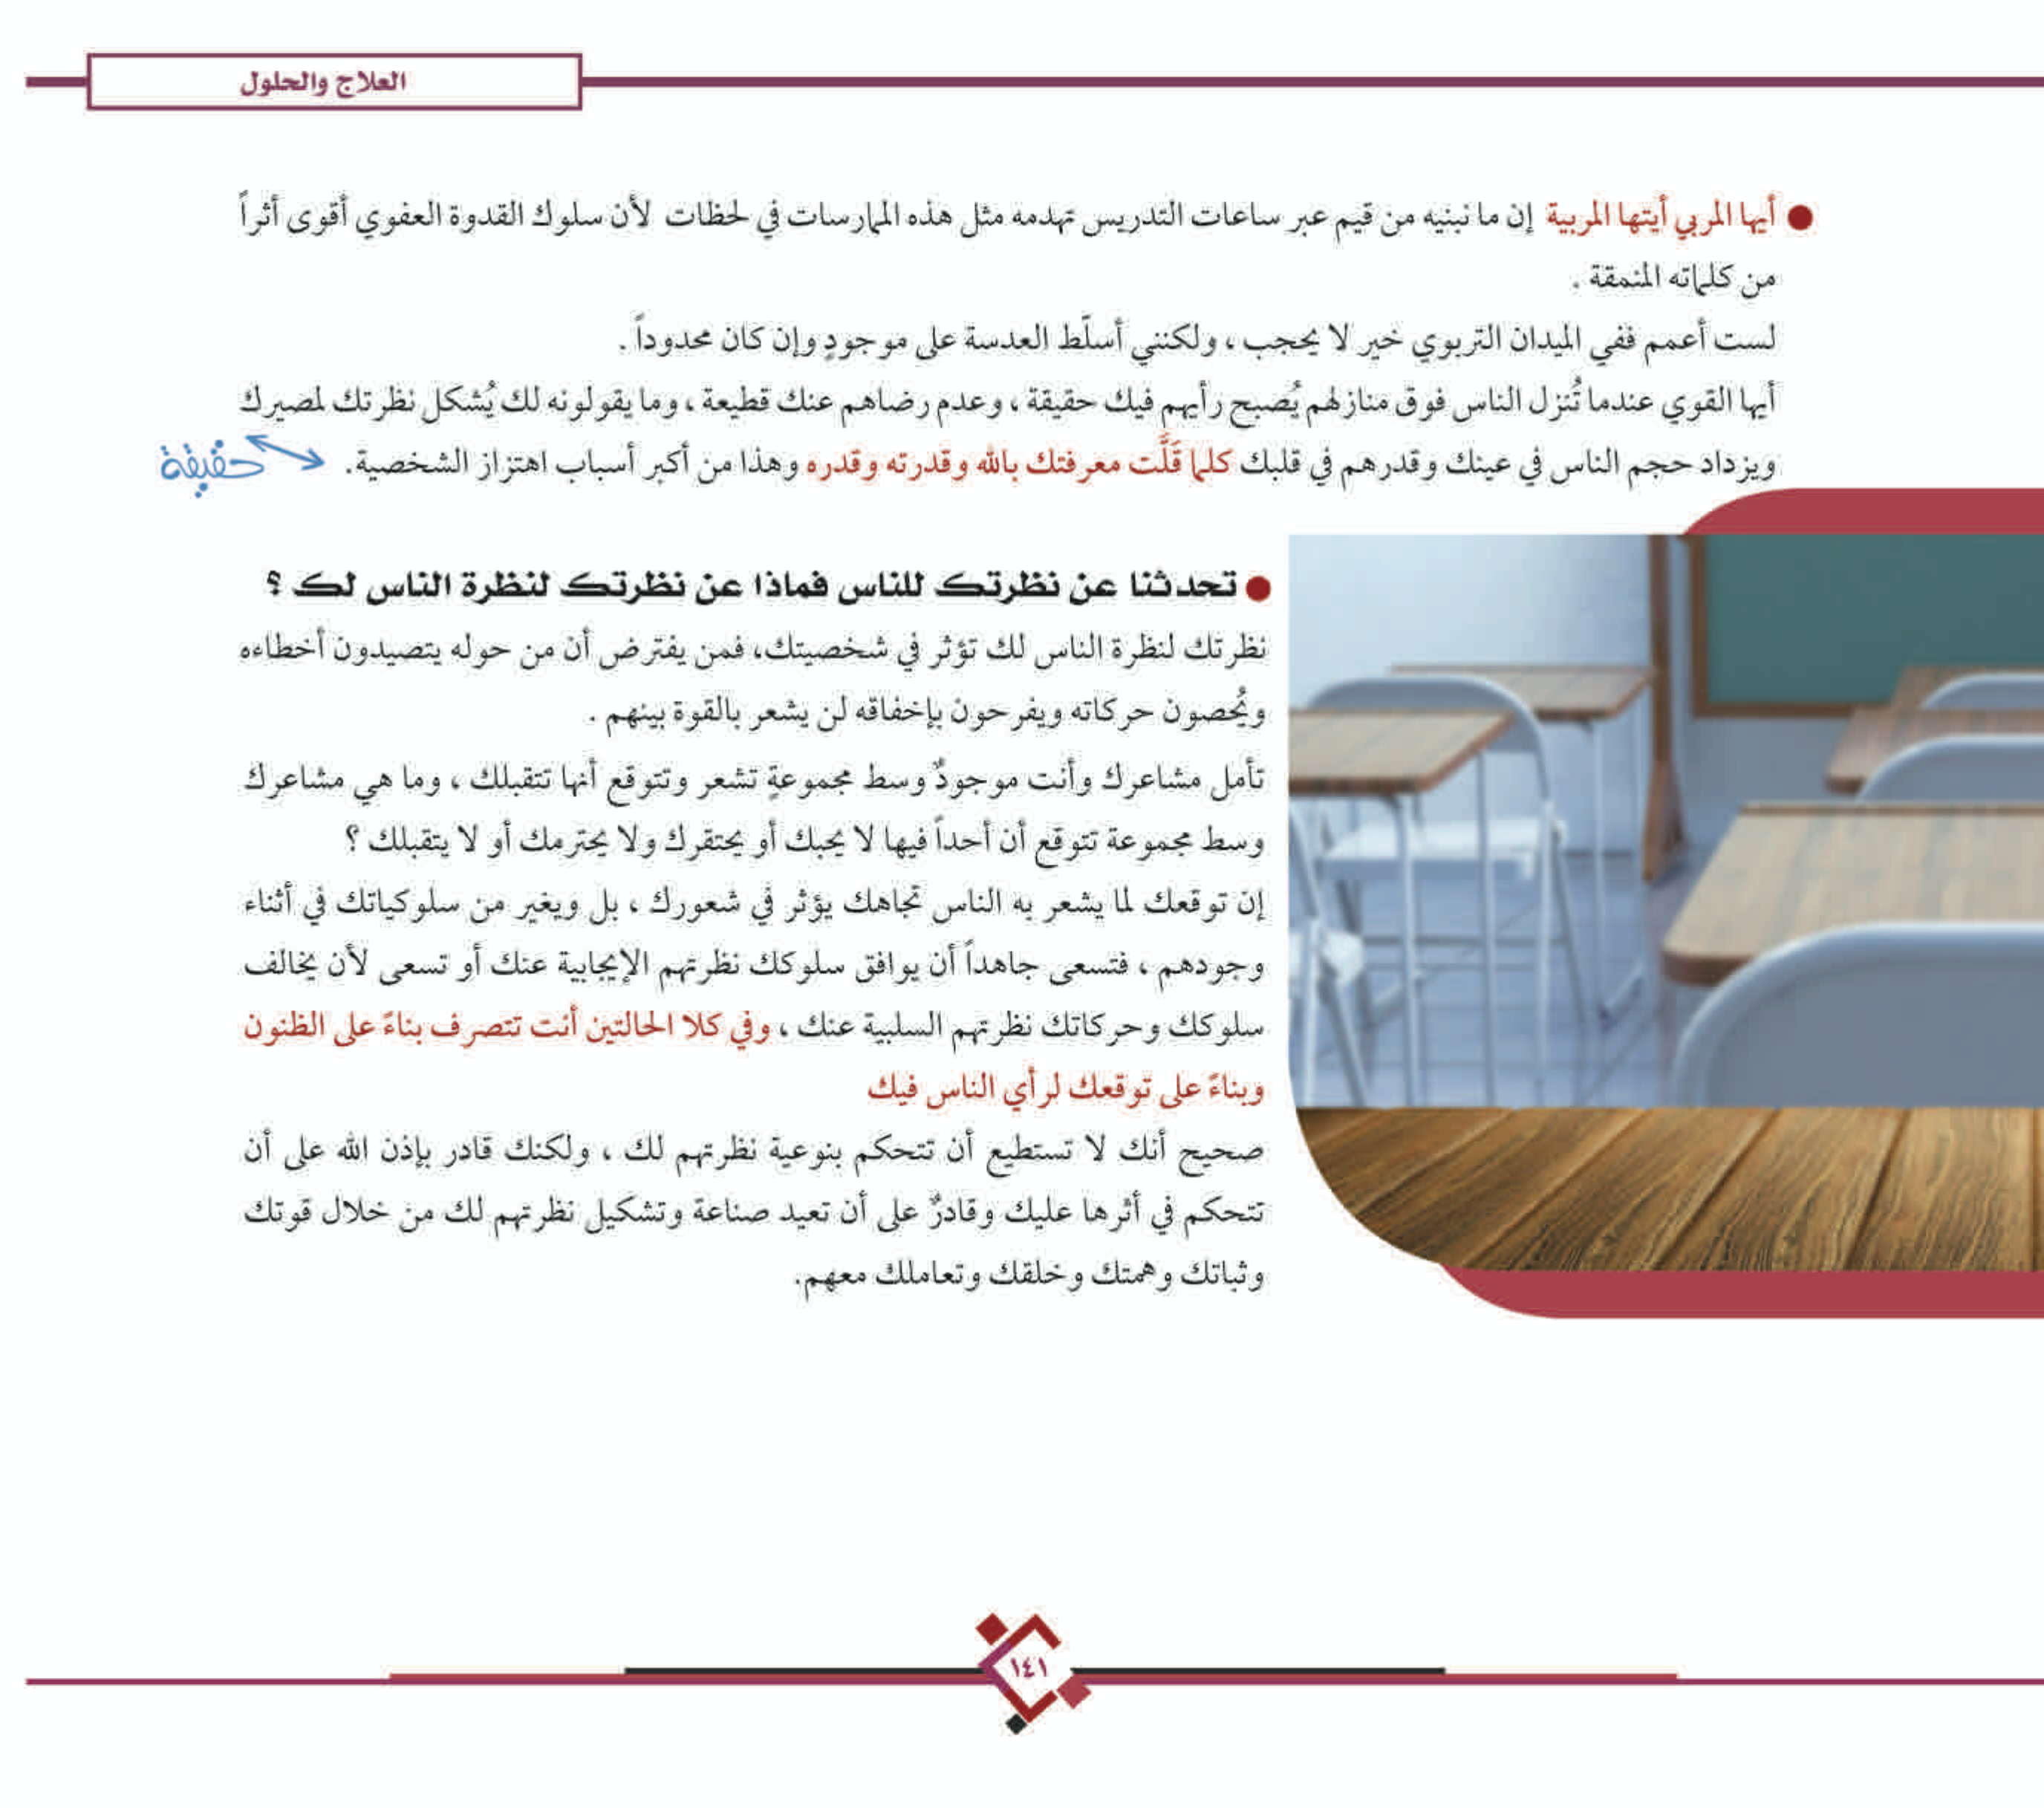 العلاج والحلول
أيها المربي أيتها المربية إن ما نبنيه من قيم عبر ساعات التدريس تهدمه مثل هذه الممارسات في لحظات لأن سلوك القدوة العفوي أقوى أثراً
من كلماته المنمقة .
لست أعمم ففي الميدان التربوي خير لا يحجب ، ولكنني أسلّط العدسة على موجودٍ وإن كان محدوداً .
أيها القوي عندما تُنزل الناس فوق منازلهم يُصبح رأيهم فيك حقيقة ، وعدم رضاهم عنك قطيعة ، وما يقولونه لك يُشكل نظرتك لمصيرك
ويزداد حجم الناس في عينك وقدرهم في قلبك كلما قَلَّت معرفتك بالله وقدرته وقدره وهذا من أكبر أسباب اهتزاز الشخصية .
حقيقة
تحدثنا عن نظرتك للناس فماذا عن نظرتك لنظرة الناس لك ؟
نظرتك لنظرة الناس لك تؤثر في شخصيتك، فمن يفترض أن من حوله يتصيدون أخطاءه
ويُحصون حركاته ويفرحون بإخفاقه لن يشعر بالقوة بينهم .
تأمل مشاعرك وأنت موجودٌ وسط مجموعةٍ تشعر وتتوقع أنها تتقبلك ، وما هي مشاعرك
وسط مجموعة تتوقع أن أحداً فيها لا يحبك أو يحتقرك ولا يحترمك أو لا يتقبلك ؟
إن توقعك لما يشعر به الناس تجاهك يؤثر في شعورك ، بل ويغير من سلوكياتك في أثناء
وجودهم ، فتسعى جاهداً أن يوافق سلوكك نظرتهم الإيجابية عنك أو تسعى لأن يخالف
سلوكك وحركاتك نظرتهم السلبية عنك ، وفي كلا الحالتين أنت تتصرف بناءً على الظنون
وبناءً على توقعك لرأي الناس فيك
صحيح أنك لا تستطيع أن تتحكم بنوعية نظرتهم لك ، ولكنك قادر بإذن الله على أن
تتحكم في أثرها عليك وقادرٌ على أن تعيد صناعة وتشكيل نظرتهم لك من خلال قوتك
وثباتك وهمتك وخلقك وتعاملك معهم.
١٤١